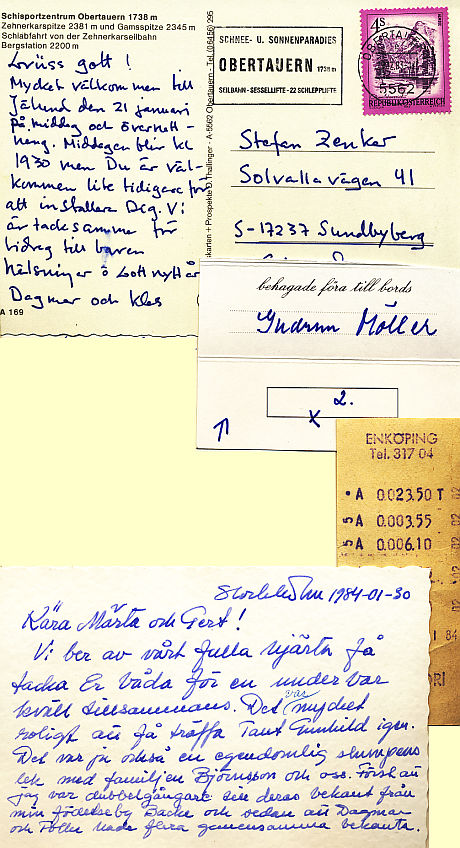 Schisportzentrum Obertauern 1738 m
Zehnerkarspitze 2381 m und Gamsspitze 2345 m
Schiabfahrt von der Zehnerkarseilbahn
Bergstation 2200 m
Grüss gott!
Mycket välkommen till
Jälund den 21 januari
på middag och övernatt-
ning. Middagen blir kl
1930 men Du är väl-
kommen lite tidigare för
att installera Dig. Vi
är tacksamma för
bidrag till baren
Hälsningar & Gott nytt år
Dagmar och Klas
A 169
skarten + Prospekte D. Thallinger - A-5562 Obertauern - Tel. (0 64 56) 295
SCHNEE- U. SONNENPARADIES
OBERTAUERN 1738m
SEILBAHN - SESSELLIFTE - 22 SCHLEPPLIFTE
1S
OBERTAUERN
5562
REPUBLIK ÖSTERREICH
Stefan Zenker
Solvallavägen 41
S-17237 Sundbyberg
behagade föra till bords
Gudrun Möller
2.
X
ENKÖPING
Tel. 317 04
A 0.023.50 T
5 A 0.003.55
5 A 0.006.10
02
84
Stockholm 1984-01-30
Kära Märta och Gert!
Vi ber av vårt fulla hjärta få
tacka Er båda för en underbar
kväll tillsammans. Det var mycket
roligt att få träffa Tant Gunhild igen.
Det var ju också en egendomlig slumpens
lek med familjen Björnsson och oss. Först att
jag var dubbelgångare till deras bekant från
min födelseby Backe och sedan att Dagmar
och Pelle hade flera gemensamma bekanta.